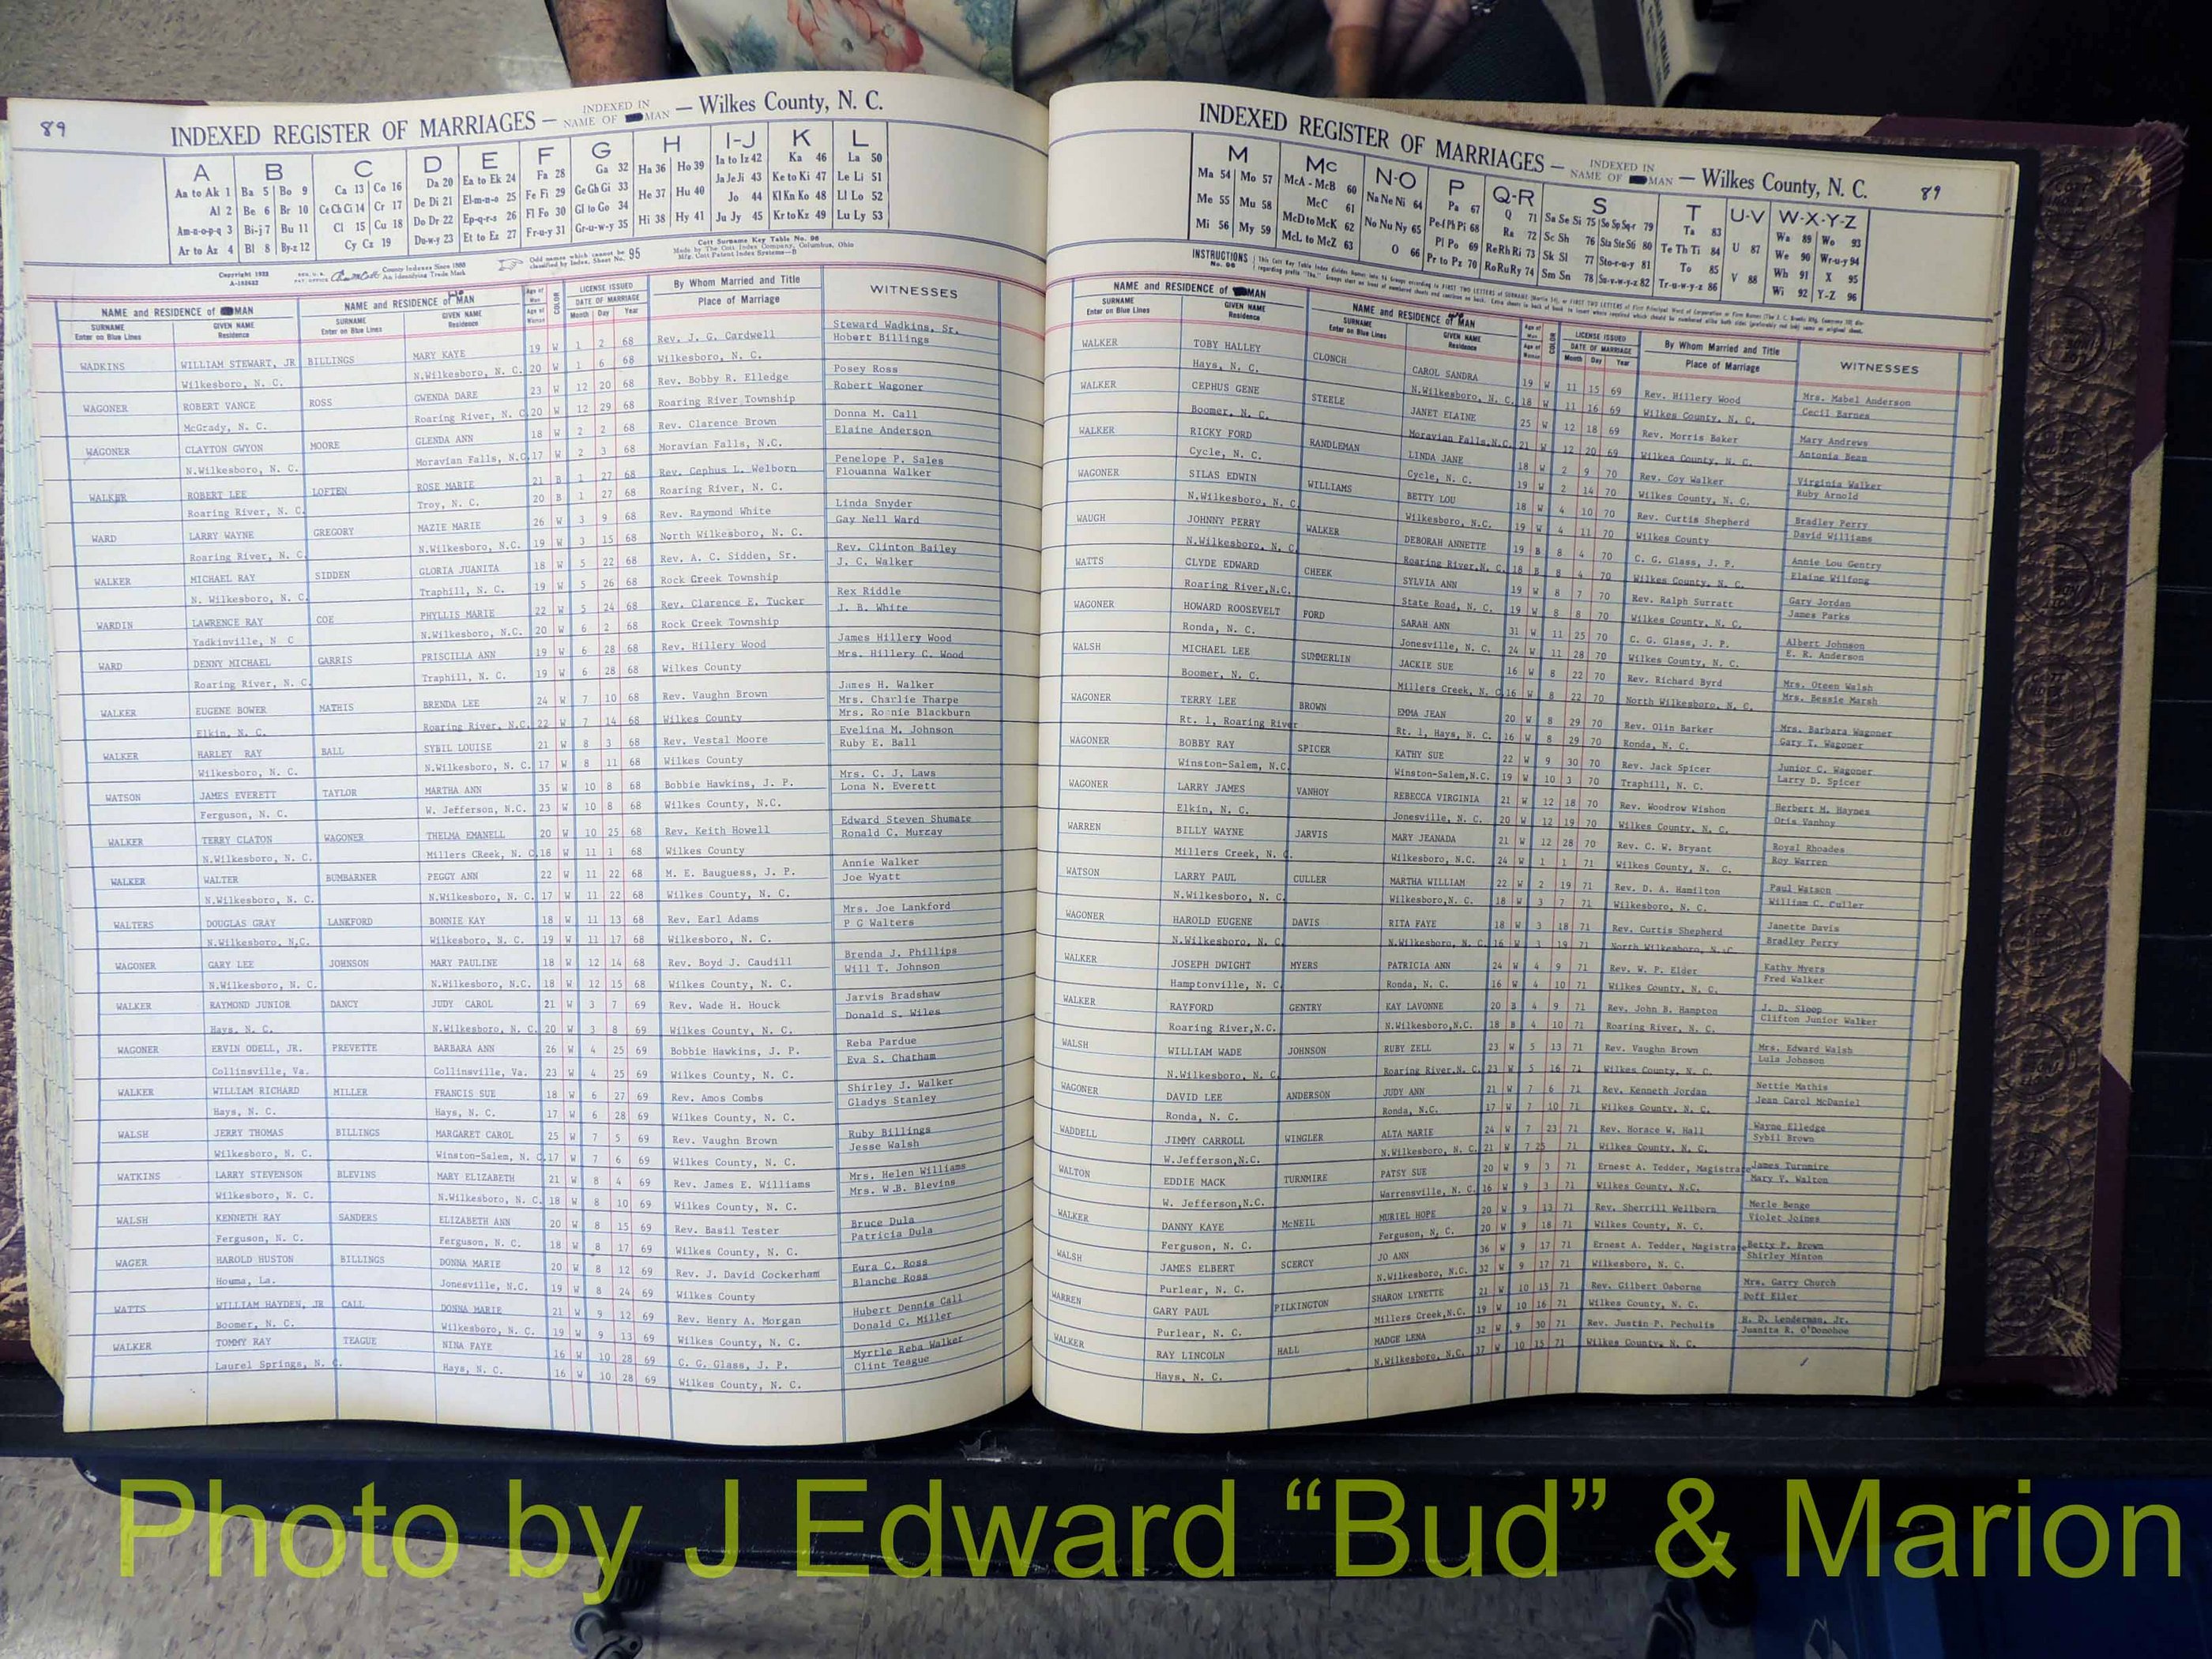 89
INDEXED REGISTER OF MARRIAGES — INDEXED IN NAME OF MAN — Wilkes County, N. C.
A B C D E F G H I-J K L
Aa to Ak 1 Ba 5 Bo 9 Ca 13 Co 16 Da 20 Ea to Ek 24 Fa 28 Ga 32 Ha 36 Ho 39 Ia to Iz 42 Ka 46 La 50
Al 2 Be 6 Br 10 Ce Ch Ci 14 Cr 17 De Di 21 El-m-n-o 25 Fe Fi 29 Ge Gh Gi 33 He 37 Hu 40 Ja Je Ji 43 Ke to Ki 47 Le Li 51
Am-n-o-p-q 3 Bi-j 7 Bu 11 Cl 15 Cu 18 Do Dr 22 Ep-q-r-s 26 Fl Fo 30 Gl to Go 34 Hi 38 Hy 41 Jo 44 Kl Kn Ko 48 Ll Lo 52
Ar to Az 4 Bl 8 By-z 12 Cy Cz 19 Du-w-y 23 Et to Ez 27 Fr-u-y 31 Gr-u-w-y 35 Ju Jy 45 Kr to Kz 49 Lu Ly 53
NAME and RESIDENCE of MAN NAME and RESIDENCE of MAN LICENSE ISSUED By Whom Married and Title WITNESSES
SURNAME GIVEN NAME SURNAME GIVEN NAME DATE OF MARRIAGE Place of Marriage
Enter on Blue Lines Residence Enter on Blue Lines Residence Month Day Year
WADKINS WILLIAM STEWART, JR BILLINGS MARY KAYE 19 W 1 2 68 Rev. J. G. Cardwell Steward Wadkins, Sr.
Wilkesboro, N. C. N.Wilkesboro, N. C. 20 W 1 6 68 Wilkesboro, N. C. Hobert Billings
WAGONER ROBERT VANCE ROSS GWENDA DARE 23 W 12 20 68 Rev. Bobby R. Elledge Posey Ross
McGrady, N. C. Roaring River, N. C 20 W 12 29 68 Roaring River Township Robert Wagoner
WAGONER CLAYTON GWYON MOORE GLENDA ANN 18 W 2 2 68 Rev. Clarence Brown Donna M. Call
N.Wilkesboro, N. C. Moravian Falls, N.C 17 W 2 3 68 Moravian Falls, N.C. Elaine Anderson
WALKER ROBERT LEE LOFTEN ROSE MARIE 21 B 1 27 68 Rev. Cephus L. Welborn Penelope P. Sales
Roaring River, N. C. Troy, N. C. 20 B 1 27 68 Roaring River, N. C. Flouanna Walker
WARD LARRY WAYNE GREGORY MAZIE MARIE 26 W 3 9 68 Rev. Raymond White Linda Snyder
Roaring River, N. C N.Wilkesboro, N.C. 19 W 3 15 68 North Wilkesboro, N. C. Gay Nell Ward
WALKER MICHAEL RAY SIDDEN GLORIA JUANITA 18 W 5 22 68 Rev. A. C. Sidden, Sr. Rev. Clinton Bailey
N. Wilkesboro, N. C. Traphill, N. C. 19 W 5 26 68 Rock Creek Township J. C. Walker
WARDIN LAWRENCE RAY COE PHYLLIS MARIE 22 W 5 24 68 Rev. Clarence E. Tucker Rex Riddle
Yadkinville, N C N.Wilkesboro, N.C. 20 W 6 2 68 Rock Creek Township J. B. White
WARD DENNY MICHAEL GARRIS PRISCILLA ANN 19 W 6 28 68 Rev. Hillery Wood James Hillery Wood
Roaring River, N. C. Traphill, N. C. 19 W 6 28 68 Wilkes County Mrs. Hillery C. Wood
WALKER EUGENE BOWER MATHIS BRENDA LEE 24 W 7 10 68 Rev. Vaughn Brown James H. Walker
Mrs. Charlie Tharpe
Elkin, N. C. Roaring River, N.C. 22 W 7 14 68 Wilkes County Mrs. Ronnie Blackburn
WALKER HARLEY RAY BALL SYBIL LOUISE 21 W 8 3 68 Rev. Vestal Moore Evelina M. Johnson
Wilkesboro, N. C. N.Wilkesboro, N. C. 17 W 8 11 68 Wilkes County Ruby E. Ball
WATSON JAMES EVERETT TAYLOR MARTHA ANN 35 W 10 8 68 Bobbie Hawkins, J. P. Mrs. C. J. Laws
Ferguson, N. C. W. Jefferson, N.C. 23 W 10 8 68 Wilkes County, N.C. Lona N. Everett
WALKER TERRY CLATON WAGONER THELMA EMANELL 20 W 10 25 68 Rev. Keith Howell Edward Steven Shumate
N.Wilkesboro, N. C. Millers CReek, N. C. 18 W 11 1 68 Wilkes County Ronald C. Murray
WALKER WALTER BUMBARNER PEGGY ANN 22 W 11 22 68 M. E. Bauguess, J. P. Annie Walker
N.Wilkesboro, N. C. N.Wilkesboro, N. C. 17 W 11 22 68 Wilkes County, N. C. Joe Wyatt
WALTERS DOUGLAS GRAY LANKFORD BONNIE KAY 18 W 11 13 68 Rev. Earl Adams Mrs. Joe Lankford
N.Wilkesboro, N.C. Wilkesboro, N. C. 19 W 11 17 68 Wilkesboro, N. C. P G Walters
WAGONER GARY LEE JOHNSON MARY PAULINE 18 W 12 14 68 Rev. Boyd J. Caudill Brenda J. Phillips
N.Wilkesboro, N. C. N.Wilkesboro, N.C. 18 W 12 15 68 Wilkes County, N. C. Will T. Johnson
WALKER RAYMOND JUNIOR DANCY JUDY CAROL 21 W 3 7 69 Rev. Wade H. Houck Jarvis Bradshaw
Hays, N. C. N.Wilkesboro, N. C. 20 W 3 8 69 Wilkes County, N. C. Donald S. Wiles
WAGONER ERVIN ODELL, JR. PREVETTE BARBARA ANN 26 W 4 25 69 Bobbie Hawkins, J. P. Reba Pardue
Collinsville, Va. Collinsville, Va. 23 W 4 25 69 Wilkes County, N. C. Eva S. Chatham
WALKER WILLIAM RICHARD MILLER FRANCIS SUE 18 W 6 27 69 Rev. Amos Combs Shirley J. Walker
Hays, N. C. Hays, N. C. 17 W 6 28 69 Wilkes County, N. C. Gladys Stanley
WALSH JERRY THOMAS BILLINGS MARGARET CAROL 25 W 7 5 69 Rev. Vaughn Brown Ruby Billings
Wilkesboro, N. C. Winston-Salem, N. C. 17 W 7 6 69 Wilkes County, N. C. Jesse Walsh
WATKINS LARRY STEVENSON BLEVINS MARY ELIZABETH 21 W 8 4 69 Rev. James E. Williams Mrs. Helen Williams
Wilkesboro, N. C. N.Wilkesboro, N. C. 18 W 8 10 69 Wilkes County, N. C. Mrs. W.B. Blevins
WALSH KENNETH RAY SANDERS ELIZABETH ANN 20 W 8 15 69 Rev. Basil Tester Bruce Dula
Ferguson, N. C. Ferguson, N. C. 18 W 8 17 69 Wilkes County, N. C. Patricia Dula
WAGER HAROLD HUSTON BILLINGS DONNA MARIE 20 W 8 12 69 Rev. J. David Cockerham Eura C. Ross
Houma, La. Jonesville, N.C. 19 W 8 24 69 Wilkes County Blanche Ross
WATTS WILLIAM HAYDEN, JR CALL DONNA MARIE 21 W 9 12 69 Rev. Henry A. Morgan Hubert Dennis Call
Boomer, N. C. Wilkesboro, N. C. 19 W 9 13 69 Wilkes County, N. C. Donald C. Miller
WALKER TOMMY RAY TEAGUE NINA FAYE 16 W 10 28 69 C. G. Glass, J. P. Myrtle Reba Walker
Laurel Springs, N. C. Hays, N. C. 16 W 10 28 69 Wilkes County, N. C. Clint Teague
INDEXED REGISTER OF MARRIAGES — INDEXED IN NAME OF MAN — Wilkes County, N. C. 89
M Mc N-O P Q-R S T U-V W-X-Y-Z
Ma 54 Mo 57 McA - McB 60 Na Ne Ni 64 Pa 67 Q 71 Sa Se Si 75 So Sp Sq-r 79 Ta 83 U 87 Wa 89 Wo 93
Me 55 Mu 58 McC 61 No Nu Ny 65 Pe-f Ph Pi 68 Ra 72 Sc Sh 76 Sta Ste Sti 80 Te Th Ti 84 V 88 We 90 Wr-u-y 94
Mi 56 My 59 McD to McK 62 O 66 Pl Po 69 Re Rh Ri 73 Sk Sl 77 Sto-r-u-y 81 To 85 Wh 91 X 95
McL to McZ 63 Pr to Pz 70 Ro Ru Ry 74 Sm Sn 78 Su-v-w-y-z 82 Tr-u-w-y-z 86 Wi 92 Y-Z 96
NAME and RESIDENCE of MAN NAME and RESIDENCE of MAN LICENSE ISSUED By Whom Married and Title WITNESSES
SURNAME GIVEN NAME SURNAME GIVEN NAME DATE OF MARRIAGE Place of Marriage
Enter on Blue Lines Residence Enter on Blue Lines Residence Month Day Year
WALKER TOBY HALLEY CLONCH CAROL SANDRA 19 W 11 15 69 Rev. Hillery Wood Mrs. Mabel Anderson
Hays, N. C. N.Wilkesboro, N. C. 18 W 11 16 69 Wilkes County, N. C. Cecil Barnes
WALKER CEPHUS GENE STEELE JANET ELAINE 25 W 12 18 69 Rev. Morris Baker Mary Andrews
Boomer, N. C. Moravian Falls,N.C. 21 W 12 20 69 Wilkes County, N. C. Antonia Bean
WALKER RICKY FORD RANDLEMAN LINDA JANE 18 W 2 9 70 Rev. Coy Walker Virginia Walker
Cycle, N. C. Cycle, N. C. 19 W 2 14 70 Wilkes County, N. C. Ruby Arnold
WAGONER SILAS EDWIN WILLIAMS BETTY LOU 18 W 4 10 70 Rev. Curtis Shepherd Bradley Perry
N.Wilkesboro, N. C. Wilkesboro, N.C. 19 W 4 11 70 Wilkes County David Williams
WAUGH JOHNNY PERRY WALKER DEBORAH ANNETTE 19 B 8 4 70 C. G. Glass, J. P. Annie Lou Gentry
N.Wilkesboro, N. C. Roaring River,N. C. 18 B 8 4 70 Wilkes County, N. C. Elaine Wilfong
WATTS CLYDE EDWARD CHEEK SYLVIA ANN 19 W 8 7 70 Rev. Ralph Surratt Gary Jordan
Roaring River,N.C. State Road, N. C. 19 W 8 8 70 Wilkes County, N. C. James Parks
WAGONER HOWARD ROOSEVELT FORD SARAH ANN 31 W 11 25 70 C. G. Glass, J. P. Albert Johnson
Ronda, N. C. Jonesville, N. C. 24 W 11 28 70 Wilkes County, N. C. E. R. Anderson
WALSH MICHAEL LEE SUMMERLIN JACKIE SUE 16 W 8 22 70 Rev. Richard Byrd Mrs. Oteen Walsh
Boomer, N. C. Millers Creek, N. C. 16 W 8 22 70 North Wilkesboro, N. C. Mrs. Bessie Marsh
WAGONER TERRY LEE BROWN EMMA JEAN 20 W 8 29 70 Rev. Olin Barker Mrs. Barbara Wagoner
Rt. 1, Roaring River Rt. 1, Hays, N. C. 16 W 8 29 70 Ronda, N. C. Gary T. Wagoner
WAGONER BOBBY RAY SPICER KATHY SUE 22 W 9 30 70 Rev. Jack Spicer Junior C. Wagoner
Winston-Salem, N.C. Winston-Salem,N.C. 19 W 10 3 70 Traphill, N. C. Larry D. Spicer
WAGONER LARRY JAMES VANHOY REBECCA VIRGINIA 21 W 12 18 70 Rev. Woodrow Wishon Herbert M. Haynes
Elkin, N. C. Jonesville, N. C. 20 W 12 19 70 Wilkes County, N. C. Otis Vanhoy
WARREN BILLY WAYNE JARVIS MARY JEANADA 21 W 12 28 70 Rev. C. W. Bryant Royal Rhoades
Millers Creek, N. C. Wilkesboro, N.C. 24 W 1 1 71 Wilkes County, N. C. Roy Warren
WATSON LARRY PAUL CULLER MARTHA WILLIAM 22 W 2 19 71 Rev. D. A. Hamilton Paul Watson
N.Wilkesboro, N. C. Wilkesboro,N. C. 18 W 3 7 71 Wilkesboro, N. C. William C. Culler
WAGONER HAROLD EUGENE DAVIS RITA FAYE 18 W 3 18 71 Rev. Curtis Shepherd Janette Davis
N.Wilkesboro, N. C. N.Wilkesboro, N. C. 16 W 3 19 71 North Wilkesboro, N. C Bradley Perry
WALKER JOSEPH DWIGHT MYERS PATRICIA ANN 24 W 4 9 71 Rev. W. P. Elder Kathy Myers
Hamptonville, N. C. Ronda, N. C. 16 W 4 10 71 Wilkes County, N. C. Fred Walker
WALKER RAYFORD GENTRY KAY LAVONNE 20 B 4 9 71 Rev. John B. Hampton J. D. Sloop
Roaring River,N.C. N.Wilkesboro,N.C. 18 B 4 10 71 Roaring River, N. C. Clifton Junior Walker
WALSH WILLIAM WADE JOHNSON RUBY ZELL 23 W 5 13 71 Rev. Vaughn Brown Mrs. Edward Walsh
N.Wilkesboro, N. C. Roaring River,N. C. 23 W 5 16 71 Wilkes County, N. C. Lula Johnson
WAGONER DAVID LEE ANDERSON JUDY ANN 21 W 7 6 71 Rev. Kenneth Jordan Nettie Mathis
Ronda, N. C. Ronda, N.C. 17 W 7 10 71 Wilkes County, N. C. Jean Carol McDaniel
WADDELL JIMMY CARROLL WINGLER ALTA MARIE 24 W 7 23 71 Rev. Horace W. Hall Wayne Elledge
W.Jefferson,N.C. N.Wilkesboro, N. C. 21 W 7 25 71 Wilkes County, N. C. Sybil Brown
WALTON EDDIE MACK TURNMIRE PATSY SUE 20 W 9 3 71 Ernest A. Tedder, Magistrate James Turnmire
W. Jefferson,N.C. Warrensville, N. C. 16 W 9 3 71 Wilkes County, N.C. Mary V. Walton
WALKER DANNY KAYE McNEIL MURIEL HOPE 20 W 9 13 71 Rev. Sherrill Wellborn Merle Benge
Ferguson, N. C. Ferguson, N. C. 20 W 9 18 71 Wilkes County, N. C. Violet Joines
WALSH JAMES ELBERT SCERCY JO ANN 36 W 9 17 71 Ernest A. Tedder, Magistrate Betty P. Brown
Purlear, N. C. N.Wilkesboro, N.C. 32 W 9 17 71 Wilkesboro, N. C. Shirley Minton
WARREN GARY PAUL PILKINGTON SHARON LYNETTE 21 W 10 15 71 Rev. Gilbert Osborne Mrs. Garry Church
Purlear, N. C. Millers Creek,N.C. 19 W 10 16 71 Wilkes County, N. C. Doff Eller
WALKER RAY LINCOLN HALL MADGE LENA 32 W 9 30 71 Rev. Justin P. Pechulis H. D. Lenderman, Jr.
Hays, N. C. N.Wilkesboro, N.C. 37 W 10 15 71 Wilkes County, N. C. Juanita R. O'Donohoe
Photo by J Edward “Bud” & Marion